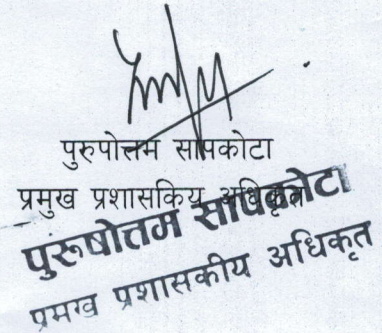 पुरुषोत्तम सापकोटा
प्रमुख प्रशासकिय अधिकृत
पुरुषोत्तम सापिकोटा
प्रमख प्रशासकीय अधिकृत